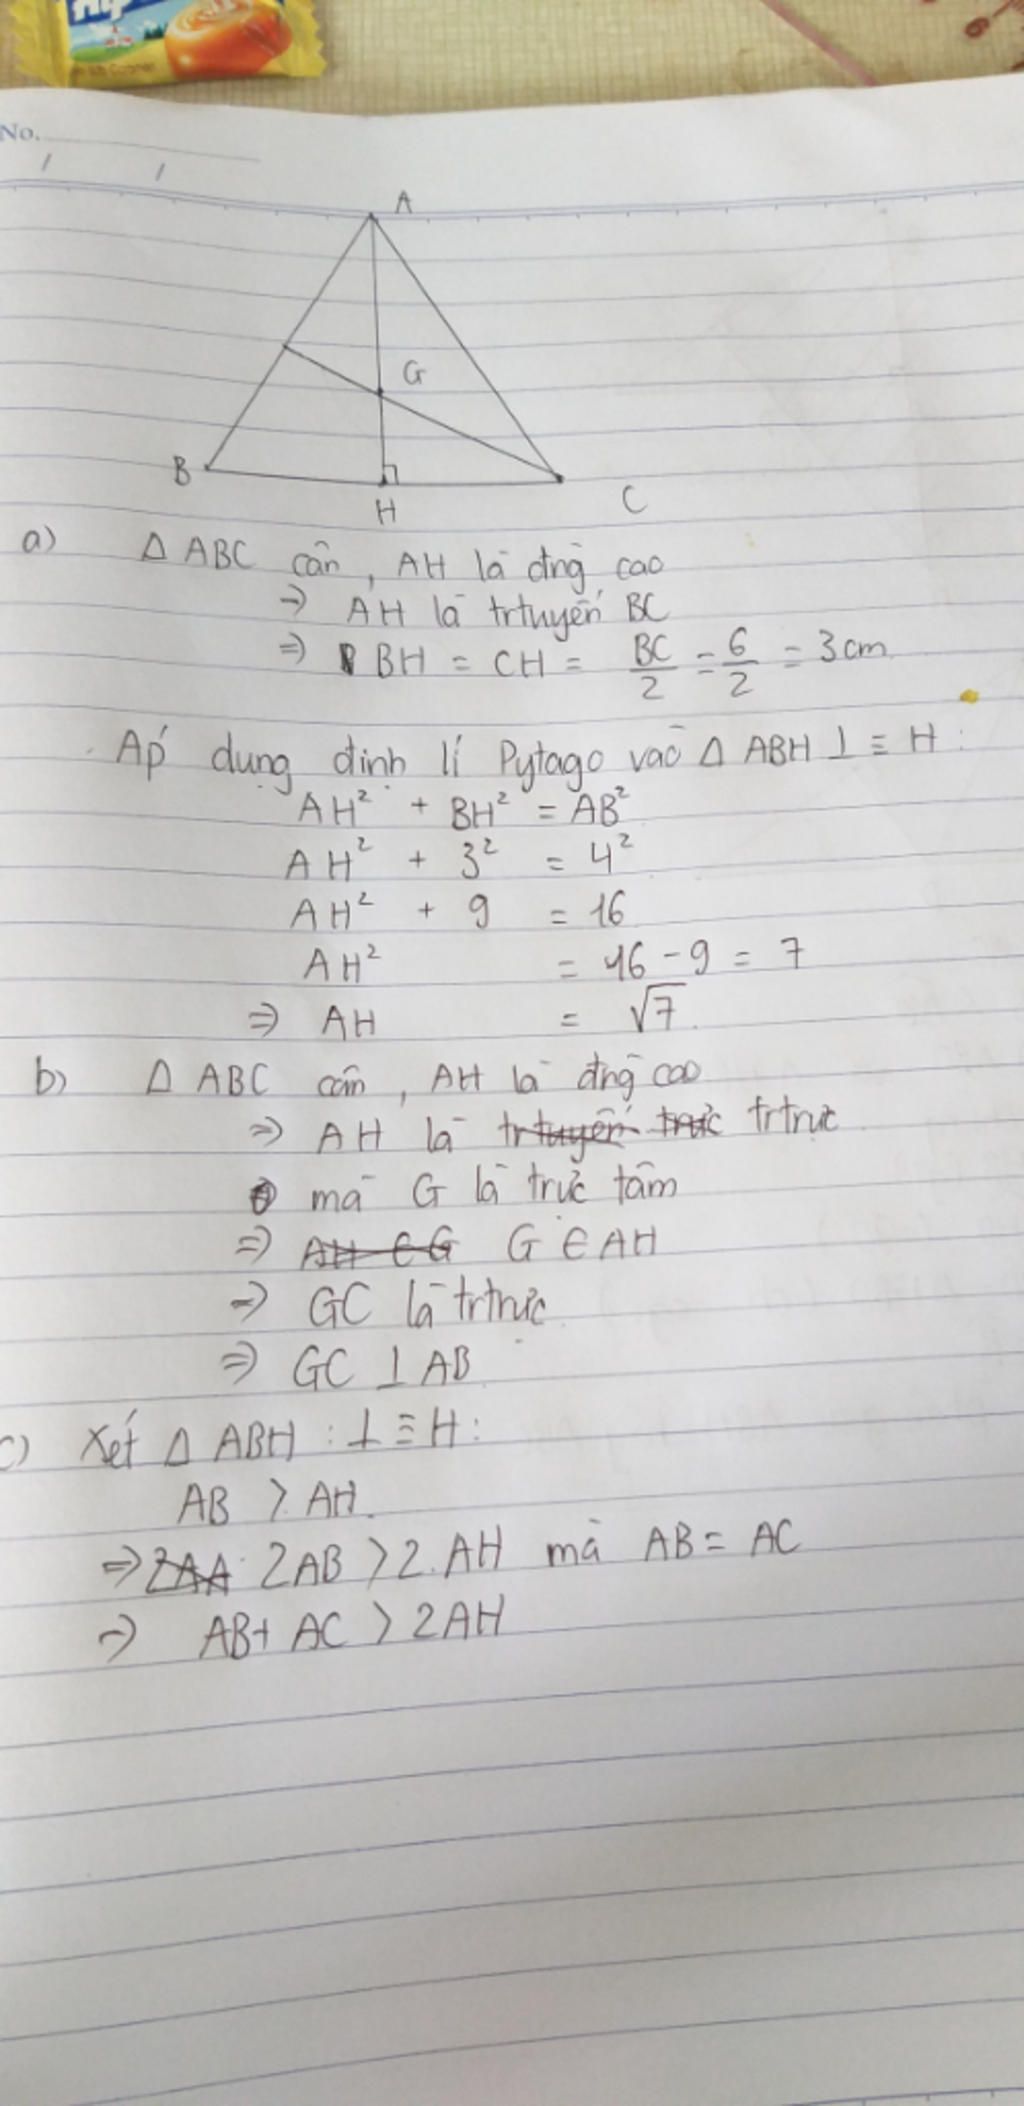 No.
A
G
B
H
C
a) Δ ABC cân, AH là đng cao
→ AH là trtuyến BC
⇒ BH = CH = BC/2 = 6/2 = 3cm
Áp dụng định lí Pytago vào Δ ABH ⊥ ≡ H :
AH² + BH² = AB²
AH² + 3² = 4²
AH² + 9 = 16
AH² = 16 - 9 = 7
⇒ AH = √7
b) Δ ABC cân, AH là đng cao
⇒ AH là trtuyến trưc trtrực
mà G là trực tâm
⇒ AH ∈ G G ∈ AH
→ GC là trtrực
⇒ GC ⊥ AB
c) Xét Δ ABH : ⊥ ≡ H :
AB > AH.
⇒ 2AA 2AB > 2.AH mà AB = AC
→ AB + AC > 2AH